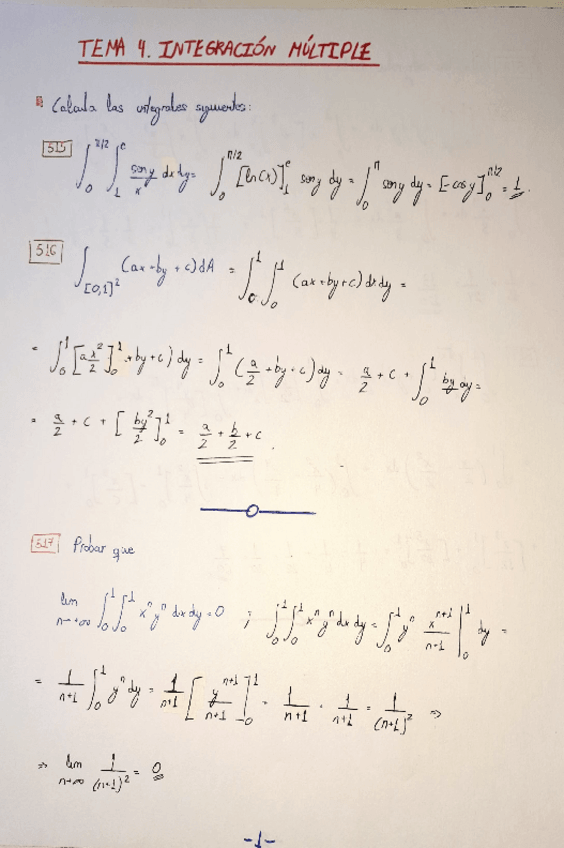 TEMA 4. INTEGRACIÓN MÚLTIPLE
Calcula las integrales siguientes:
515 ∫₀^{π/2} ∫₁^e seny/x dxdy = ∫₀^{π/2} [ln(x)]₁^e seny dy = ∫₀^π seny dy = [-cosy]₀^{π/2} = 1.
516 ∫_{[0,1]²} (ax+by+c)dA = ∫₀¹ ∫₀¹ (ax+by+c)dxdy =
= ∫₀¹ [ax²/2]₀¹ + by + c) dy = ∫₀¹ (a/2 + by + c) dy = a/2 + c + ∫₀¹ by dy =
= a/2 + c + [by²/2]₀¹ = a/2 + b/2 + c.
517 Probar que
lim n→∞ ∫₀¹ ∫₀¹ xⁿyⁿ dxdy = 0 ; ∫₀¹ ∫₀¹ xⁿyⁿ dxdy = ∫₀¹ yⁿ x^{n+1}/n+1 |₀¹ dy =
= 1/n+1 ∫₀¹ yⁿ dy = 1/n+1 [y^{n+1}/n+1]₀¹ = 1/n+1 · 1/n+1 = 1/(n+1)² ⇒
⇒ lim n→∞ 1/(n+1)² = 0
-1-